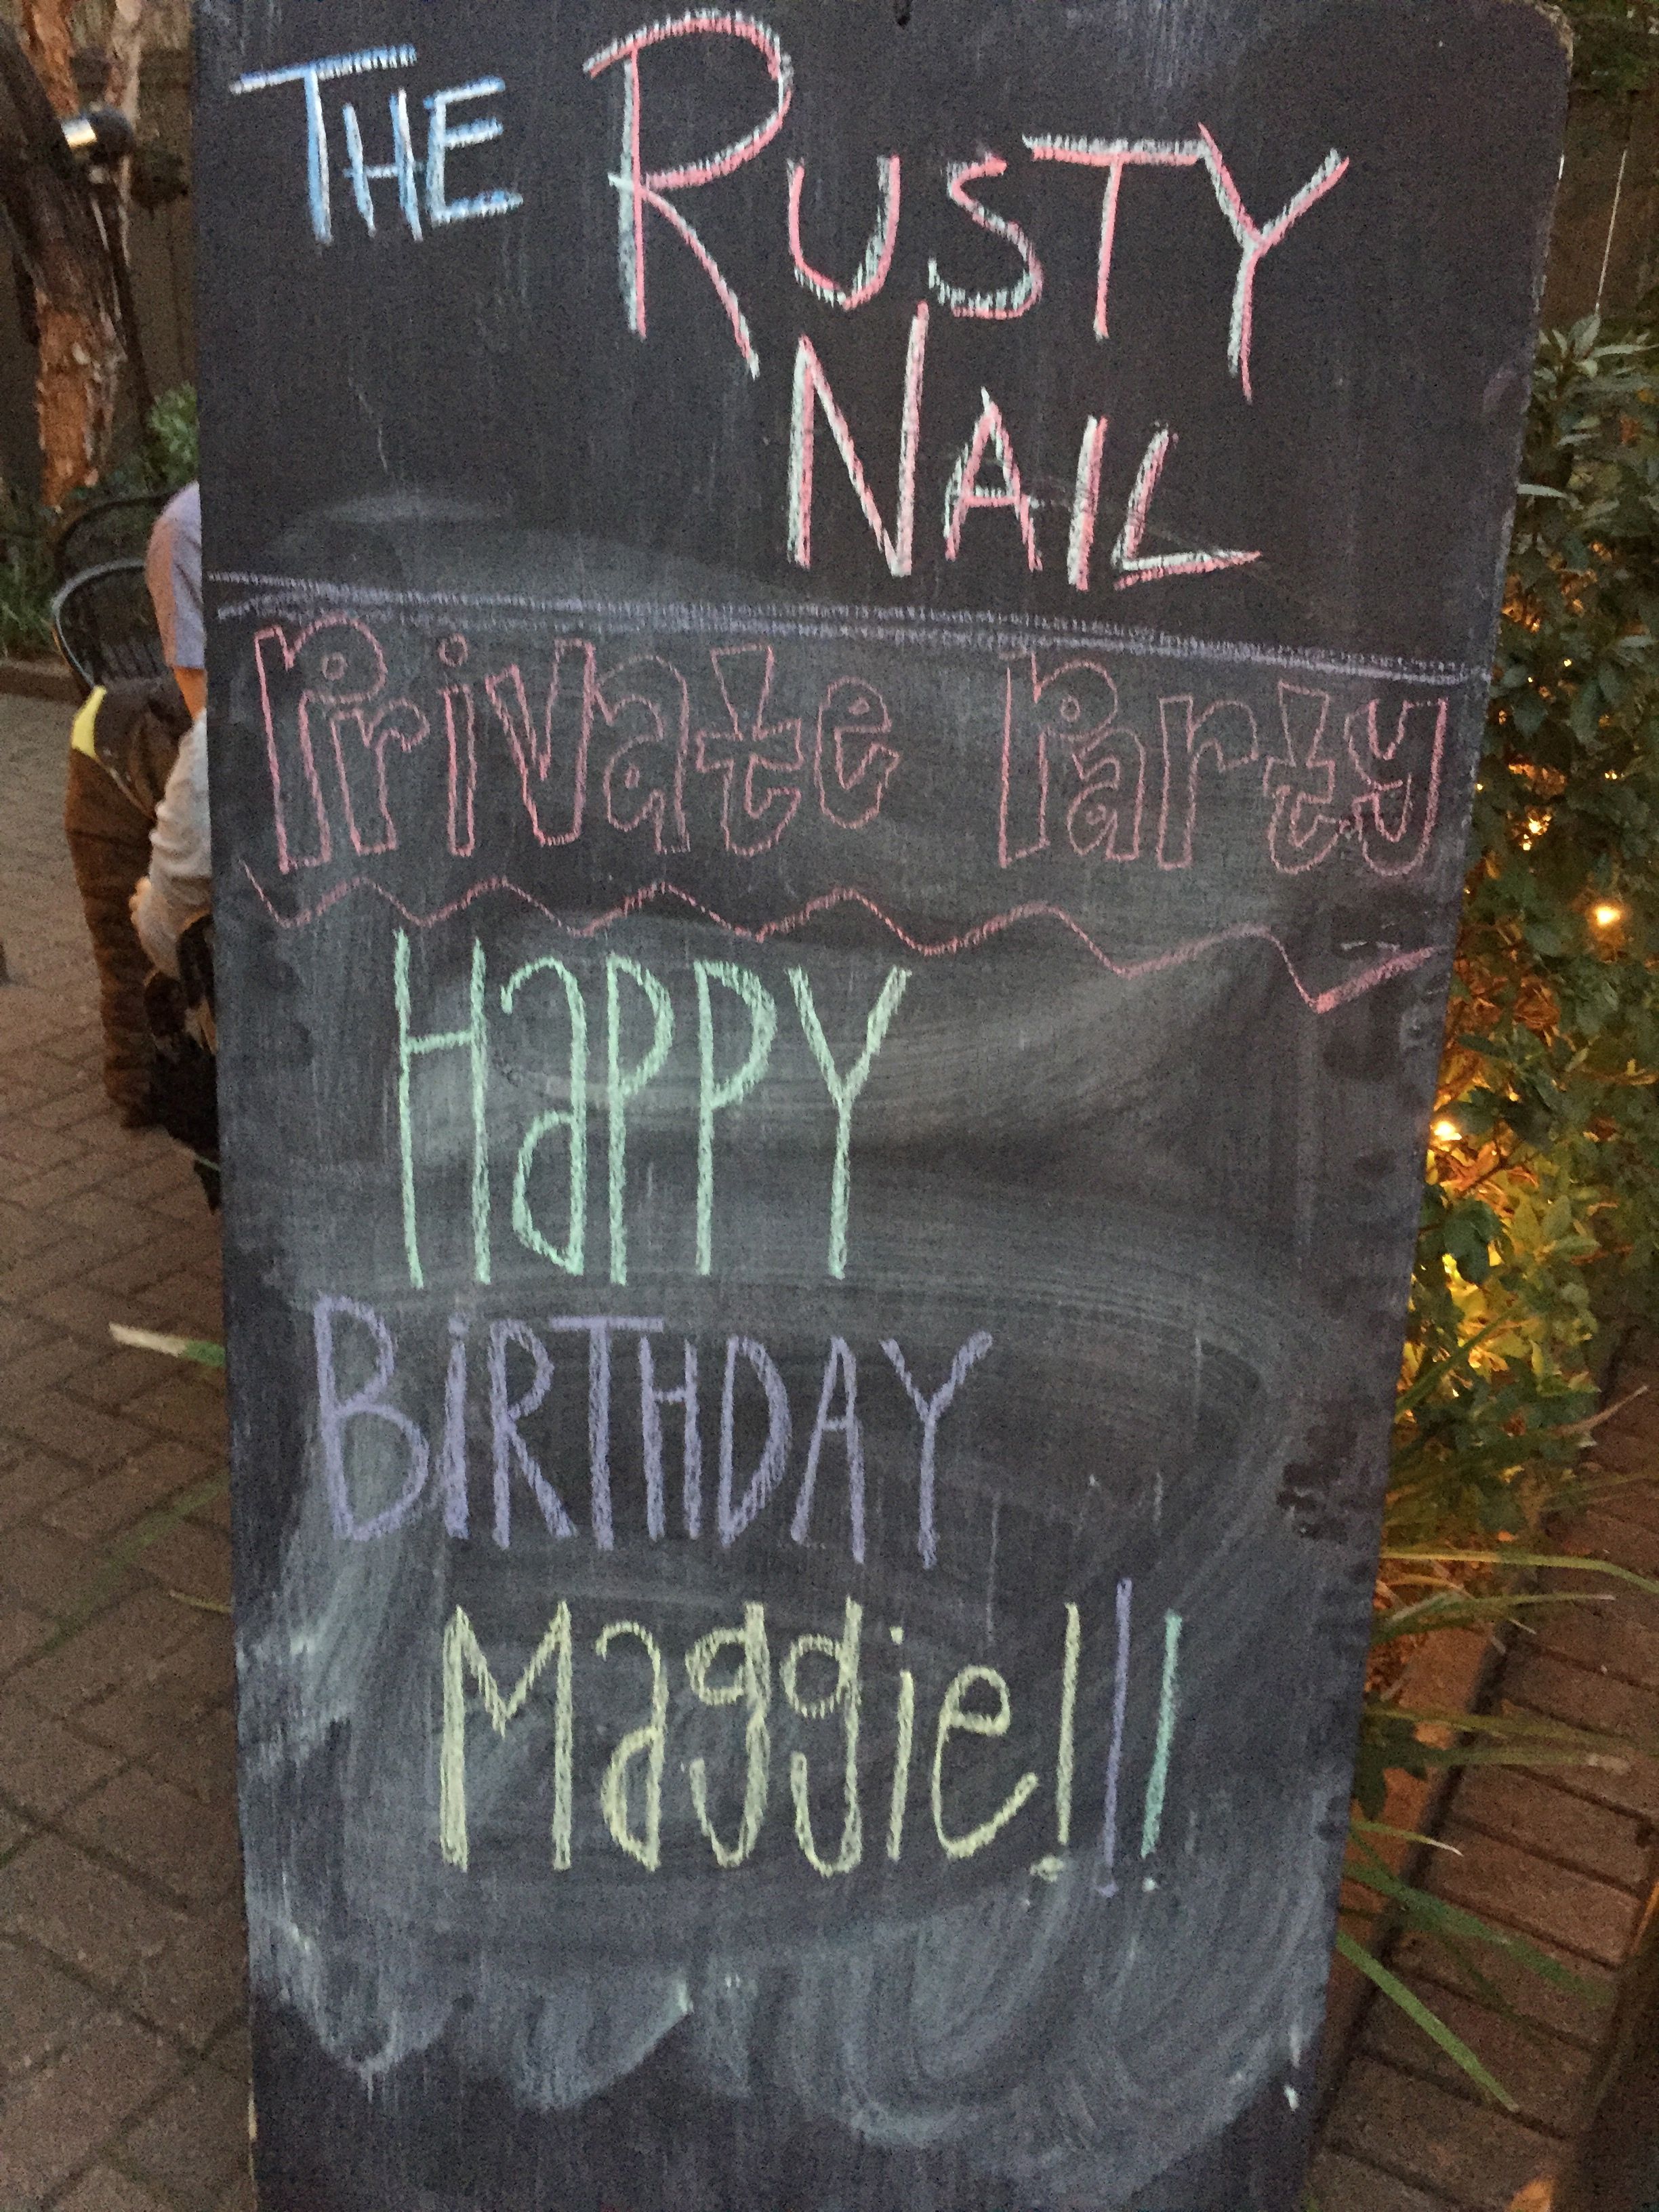 THE RUSTY
NAIL
Private Party
HaPPY
BiRTHDAY
Maggie!!!